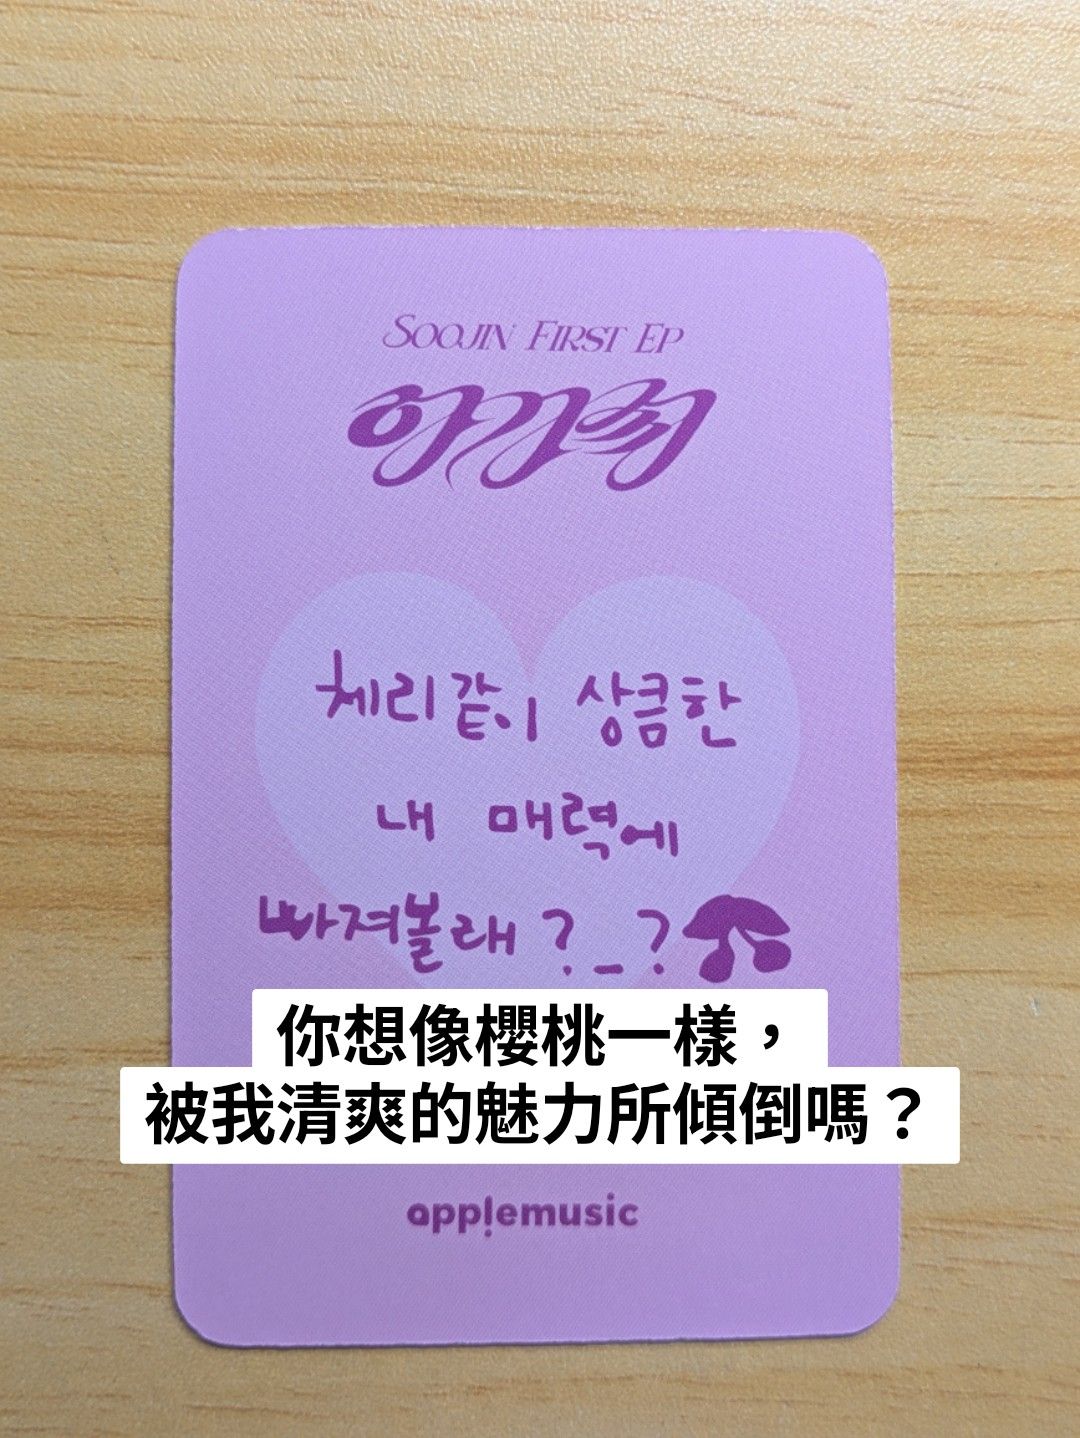 SOOJIN FIRST EP
아가씨
체리같이 상큼한
내 매력에
빠져볼래 ?_?
你想像櫻桃一樣，
被我清爽的魅力所傾倒嗎？
applemusic